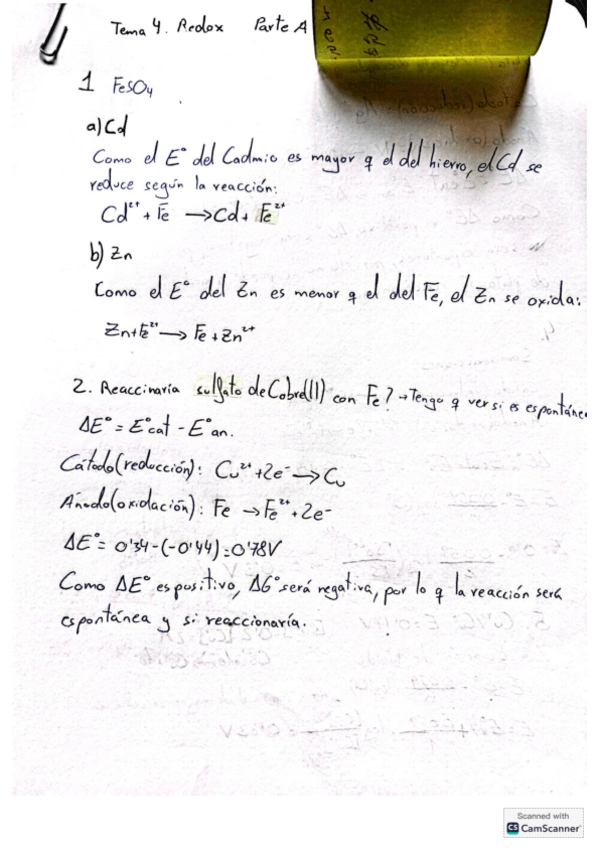 Tema 4. Redox Parte A
1 FeSO₄
a) Cd
Como el E° del Cadmio es mayor q el del hierro, el Cd se
reduce según la reacción:
Cd²⁺ + Fe → Cd + Fe²⁺
b) Zn
Como el E° del Zn es menor q el del Fe, el Zn se oxida:
Zn + Fe²⁺ → Fe + Zn²⁺
2. Reaccinaría sulfato de Cobre(II) con Fe? → Tengo q ver si es espontánea
ΔE° = E°cat - E°an.
Cátodo (reducción): Cu²⁺ + 2e⁻ → Cu
Ánodo (oxidación): Fe → Fe²⁺ + 2e⁻
ΔE° = 0'34 - (-0'44) = 0'78V
Como ΔE° es positivo, ΔG° será negativa, por lo q la reacción será
espontánea y si reaccionaría.
Scanned with
CS CamScanner